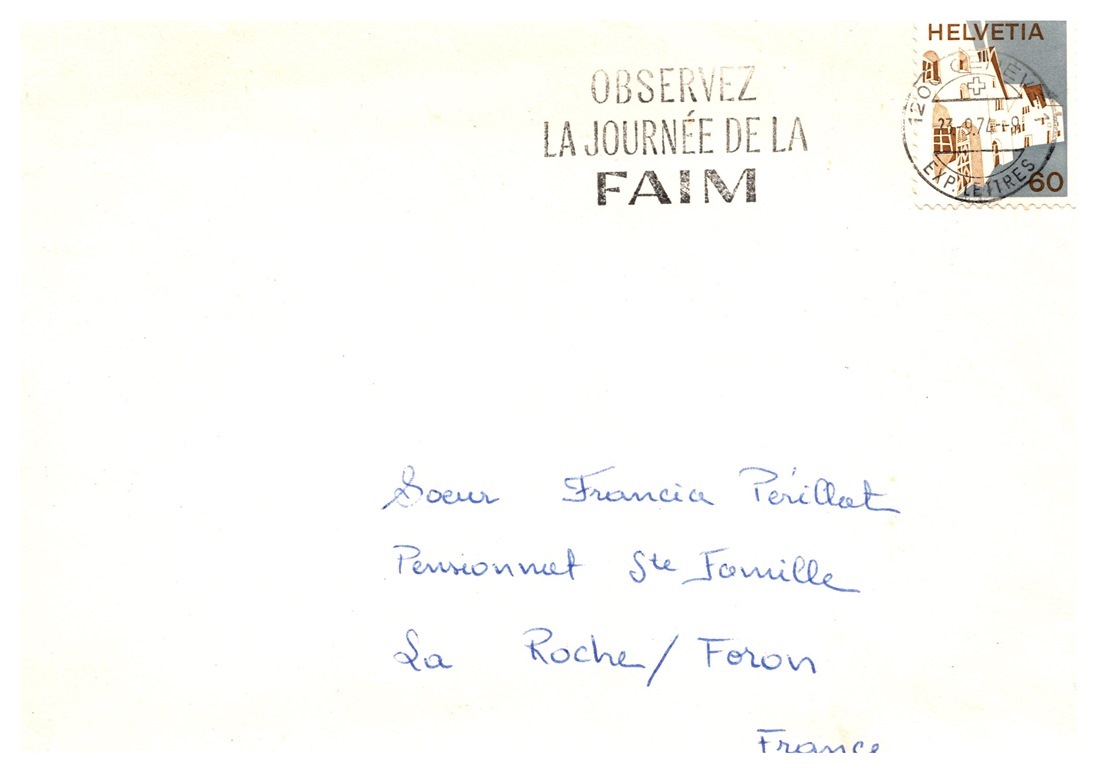 HELVETIA
OBSERVEZ
LA JOURNÉE DE LA
FAIM
23.-9.74--9
EXP. LETTRES
60
Soeur Francia Périllat
Pensionnat Ste Famille
La Roche/Foron
France